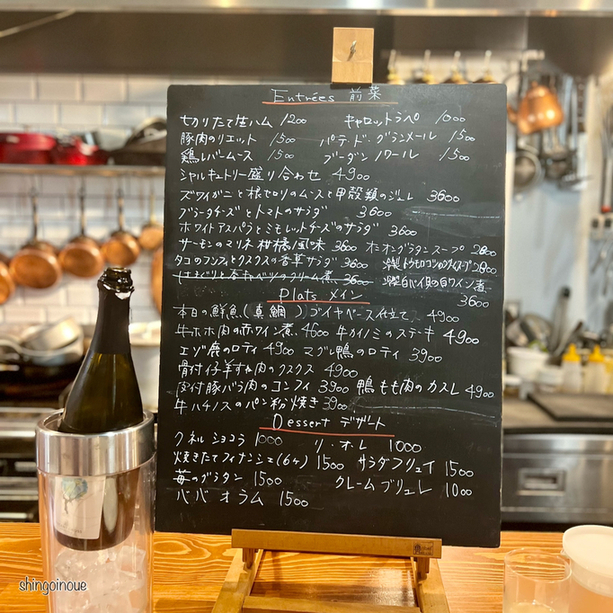 Entrées 前菜
切りたて生ハム 1200 キャロットラペ 1000
豚肉のリエット 1500 パテ・ド・グランメール 1500
鶏レバームース 1500 ブーダンノワール 1500
シャルキュトリー盛り合わせ 4900
ズワイガニと根セロリのムースと甲殻類のジュレ 3600
ブラータチーズとトマトのサラダ 3600
ホワイトアスパラとミモレットチーズのサラダ 3600
サーモンのマリネ 柑橘風味 3600 オニオングラタンスープ 2800
タコのコンフィとクスクスの香草サラダ 3600 冷製トウモロコシのスープ 2800
のクリーム煮 3600 白ワイン煮
3600
Plats メイン
本日の鮮魚(真鯛)ブイヤベース仕立て 4900
牛ホホ肉の赤ワイン煮 4600 牛カイノミのステーキ 4900
エゾ鹿のロティ 4900 マグレ鴨のロティ 3900
骨付仔羊すね肉のクスクス 4900
皮付豚バラ肉のコンフィ 3900 鴨もも肉のカスレ 4900
牛ハチノスのパン粉焼き 3900
Dessert デザート
クネルショコラ 1000 リ・オ・レ 1000
焼きたてフィナンシェ(6ヶ) 1500 サラダフリュイ 1500
苺のグラタン 1500 クレームブリュレ 1000
ババオラム 1500
shingoinoue